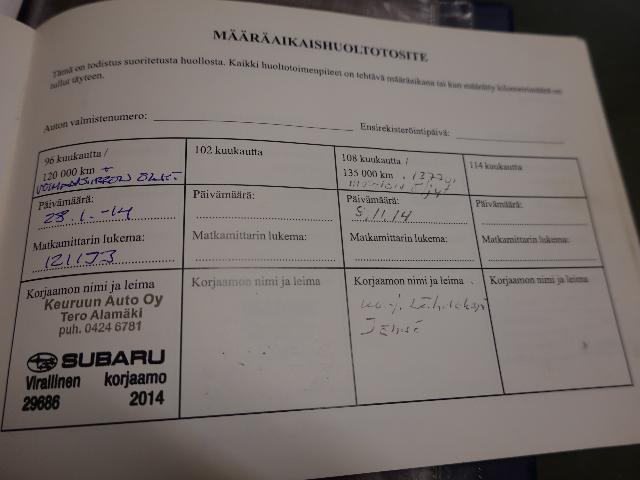 MÄÄRÄAIKAISHUOLTOTOSITE
Tämä on todistus suoritetusta huollosta. Kaikki huoltotoimenpiteet on tehtävä määräaikana tai kun määrätty kilometrimäärä on
tullut täyteen.
Auton valmistenumero:
Ensirekisteröintipäivä:
96 kuukautta /
120 000 km +
Päivämäärä:
28.1.-14
Matkamittarin lukema:
Korjaamon nimi ja leima
Keuruun Auto Oy
Tero Alamäki
puh. 0424 6781
SUBARU
Virallinen korjaamo
29686 2014
102 kuukautta
Päivämäärä:
Matkamittarin lukema:
Korjaamon nimi ja leima
108 kuukautta /
135 000 km
Päivämäärä:
5.11.14
Matkamittarin lukema:
Korjaamon nimi ja leima
114 kuukautta
Päivämäärä:
Matkamittarin lukema:
Korjaamon nimi ja leima